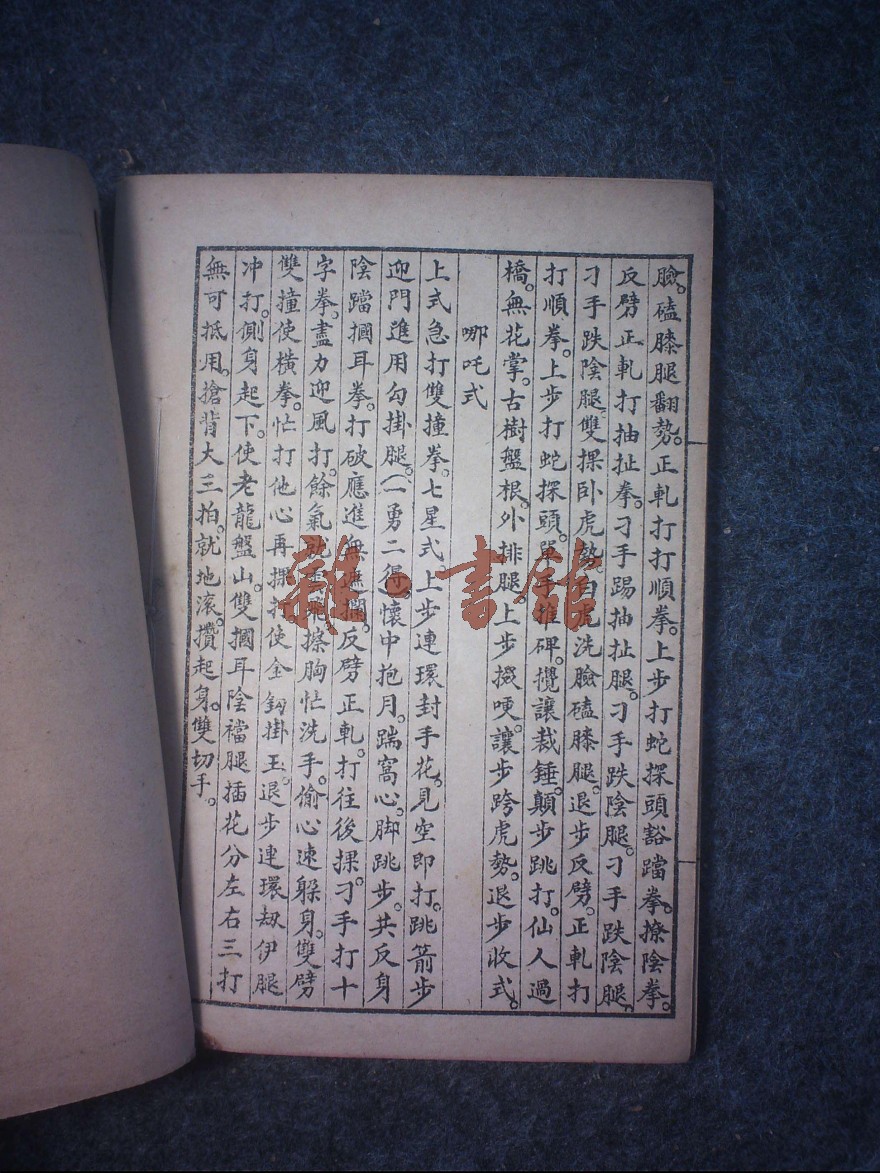 臉。磕膝腿翻勢。正軋打打順拳。上步打蛇探頭豁蹚拳。撩陰拳。
反劈正軋打抽扯拳。刁手踢抽扯腿。刁手跌陰腿。刁手跌陰腿、
刁手跌陰腿。雙捰卧虎勢白虎洗臉磕膝腿。退步反劈。正軋打
打順拳。上步打蛇探頭。單手推碑。攪讓裁錘。顛步跳打。仙人過
橋。無花掌。古樹盤根。外排腿。上步掇哽。讓步跨虎勢。退步收式。
哪吒式
上式急打雙撞拳。七星式。上步連環封手花。見空即打。跳箭步
迎門進用勾掛腿。(一勇二得)懷中抱月。踹窩心。脚跳步。共反身
陰蹚摑耳拳。打破應進無遮攔。反劈正軋。打往後捰。刁手打十
字拳。盡力迎風打。餘氣就雲飛擦胸忙洗手。偷心速躲身。雙劈
雙撞使橫拳。忙打他心再捰打使金鈎掛玉。退步連環刼伊腿
冲打。側身起下。使老龍盤山雙摑耳陰襠腿插花分左右三打
無可抵用。搶背大三拍。就地滚。攢起身。雙切手。
雜·書館